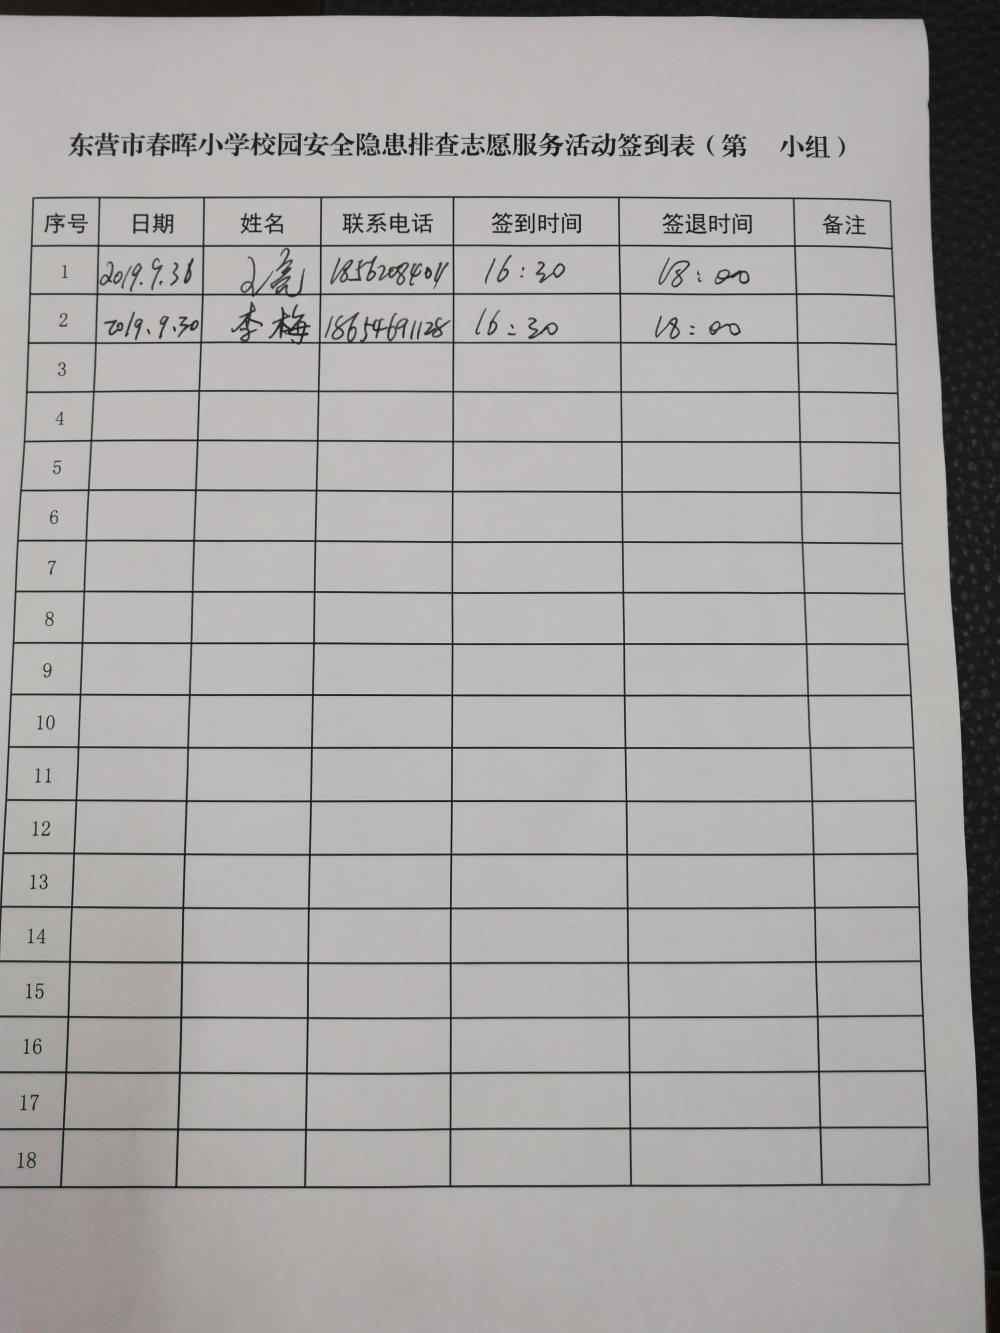 东营市春晖小学校园安全隐患排查志愿服务活动签到表（第 小组）
序号 日期 姓名 联系电话 签到时间 签退时间 备注
1 2019.9.30 亮 16:30 18:00
2 2019.9.30 李梅 18654691128 16:30 18:00
3
4
5
6
7
8
9
10
11
12
13
14
15
16
17
18